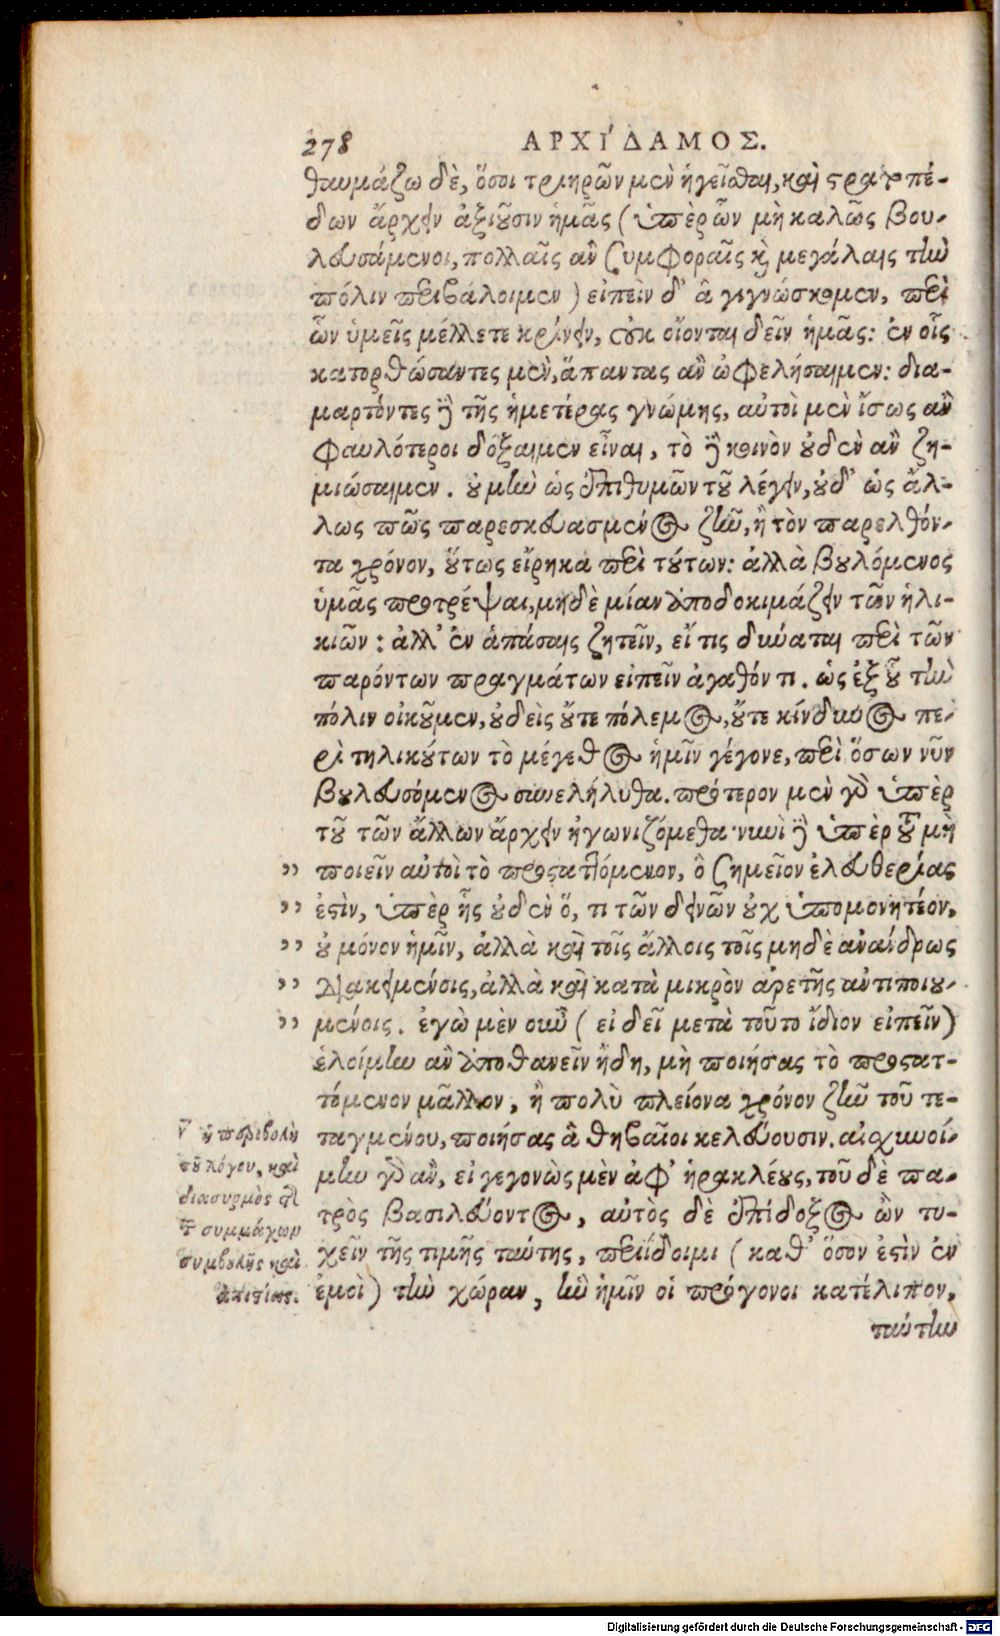 278 ΑΡΧΙ΄ΔΑΜΟΣ.
θαυμάζω δὲ, ὅσοι τριηρῶν μὲν ἡγεῖσθαι, καὶ στρατοπέ-
δων ἄρχειν ἀξιοῦσιν ἡμᾶς (ὑπὲρ ὧν μὴ καλῶς βου-
λευσάμενοι, πολλαῖς ἂν συμφοραῖς καὶ μεγάλαις τὴν
πόλιν περιβάλοιμεν) εἰπεῖν δ' ἃ γιγνώσκομεν, περὶ
ὧν ὑμεῖς μέλλετε κρίνειν, οὐκ οἴονται δεῖν ἡμᾶς: ἐν οἷς
κατορθώσαντες μὲν, ἅπαντας ἂν ὠφελήσαιμεν: δια-
μαρτόντες δὲ τῆς ἡμετέρας γνώμης, αὐτοὶ μὲν ἴσως ἂν
φαυλότεροι δόξαιμεν εἶναι, τὸ δὲ κοινὸν οὐδὲν ἂν ζη-
μιώσαιμεν. οὐ μὴν ὡς ἐπιθυμῶν τοῦ λέγειν, οὐδ' ὡς ἄλ-
λως πῶς παρεσκευασμένος ζῆν, ἢ τὸν παρελθόν-
τα χρόνον, οὕτως εἴρηκα περὶ τούτων: ἀλλὰ βουλόμενος
ὑμᾶς προτρέψαι, μηδὲ μίαν ἀποδοκιμάζειν τῶν ἡλι-
κιῶν: ἀλλ' ἐν ἁπάσαις ζητεῖν, εἴ τις δύναται περὶ τῶν
παρόντων πραγμάτων εἰπεῖν ἀγαθόν τι. ὡς ἐξ οὗ τὴν
πόλιν οἰκοῦμεν, οὐδεὶς οὔτε πόλεμος, οὔτε κίνδυνος πε-
ρὶ τηλικούτων τὸ μέγεθος ἡμῖν γέγονε, περὶ ὅσων νῦν
βουλευσόμενος συνελήλυθα. πρότερον μὲν γὰρ ὑπὲρ
τοῦ τῶν ἄλλων ἄρχειν ἠγωνιζόμεθα· νυνὶ δὲ ὑπὲρ τοῦ μὴ
” ποιεῖν αὐτοὶ τὸ προσταττόμενον, ὃ σημεῖον ἐλευθερίας
” ἐστὶν, ὑπὲρ ἧς οὐδὲν ὅ, τι τῶν δεινῶν οὐχ ὑπομονητέον,
” οὐ μόνον ἡμῖν, ἀλλὰ καὶ τοῖς ἄλλοις τοῖς μηδὲ ἀνάνδρως
” διακειμένοις, ἀλλὰ καὶ κατὰ μικρὸν ἀρετῆς ἀντιποιου-
” μένοις. ἐγὼ μὲν οὖν (εἰ δεῖ μετὰ τοῦτο ἴδιον εἰπεῖν)
ἑλοίμην ἂν ἀποθανεῖν ἤδη, μὴ ποιήσας τὸ προσατ-
τόμενον μᾶλλον, ἢ πολὺ πλείονα χρόνον ζῆν τοῦ τε-
ταγμένου, ποιήσας ἃ θηβαῖοι κελεύουσιν. αἰσχυνοί-
μην γὰρ ἂν, εἰ γεγονὼς μὲν ἀφ' ἡρακλέους, τοῦ δὲ πα-
τρὸς βασιλεύοντος, αὐτὸς δὲ ἐπίδοξος ὢν τυ-
χεῖν τῆς τιμῆς ταύτης, περιίδοιμι (καθ' ὅσον ἐστὶν ἐν
ἐμοὶ) τὴν χώραν, ἣν ἡμῖν οἱ πρόγονοι κατέλιπον,
ταύτην
ὑπερβολὴ
τοῦ λόγου, καὶ
διασυρμὸς
συμμάχων
συμβουλῆς καὶ
ἀπιστίας.
Digitalisierung gefördert durch die Deutsche Forschungsgemeinschaft - DFG